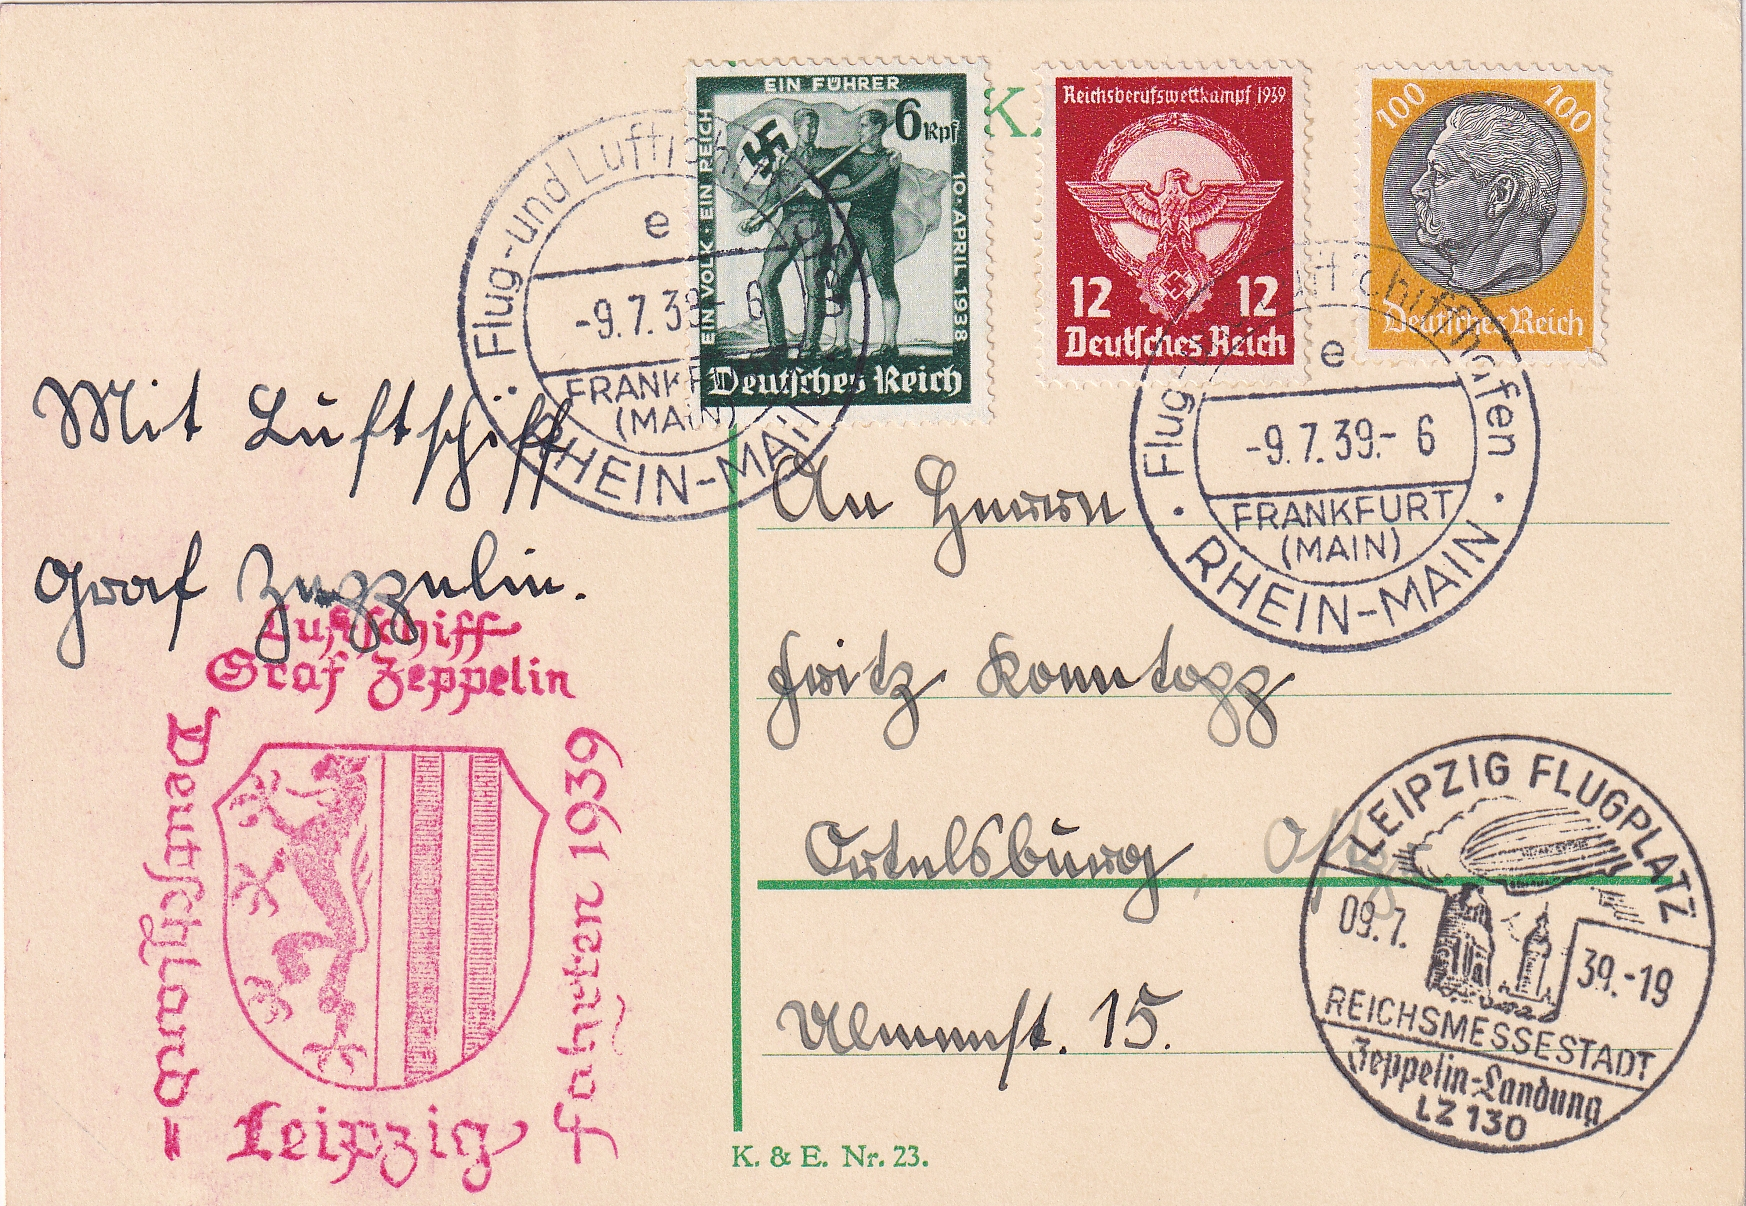 EIN FÜHRER
EIN VOLK · EIN REICH
6 Rpf
10. APRIL 1938
Deutsches Reich
K.
Reichsberufswettkampf 1939
12 12
Deutsches Reich
100 100
Deutsches Reich
Flug-und Luft
e
-9.7.39- 6
FRANKF
(MAIN)
RHEIN-MAIN
Flug- Luftschiffhafen
e
-9.7.39.- 6
FRANKFURT
(MAIN)
RHEIN-MAIN
Mit Luftschiff
Graf Zeppelin.
An Herrn
Fritz
Ortelsburg, O/Pr
Ulmenst. 15.
Luftschiff
Graf Zeppelin
Deutschland=
fahrten 1939
Leipzig
LEIPZIG FLUGPLATZ
09.7. 39.-19
REICHSMESSESTADT
Zeppelin-Landung
LZ 130
K. & E. Nr. 23.